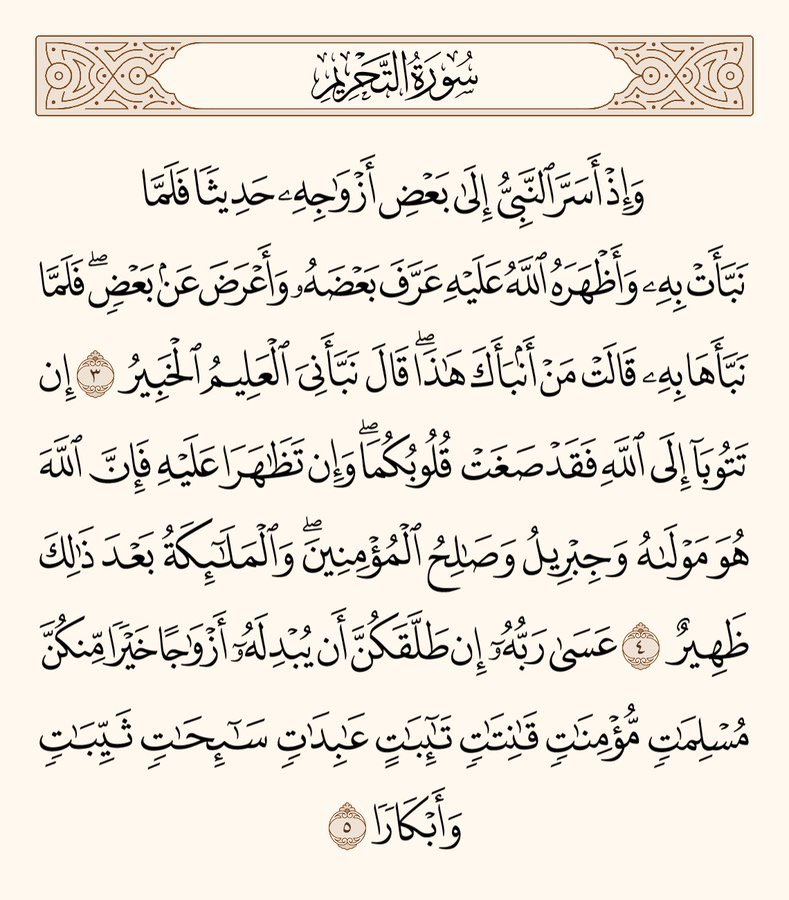 سُورَةُ التَّحْرِيمِ
وَإِذۡ أَسَرَّ ٱلنَّبِيُّ إِلَىٰ بَعۡضِ أَزۡوَٰجِهِۦ حَدِيثٗا فَلَمَّا
نَبَّأَتۡ بِهِۦ وَأَظۡهَرَهُ ٱللَّهُ عَلَيۡهِ عَرَّفَ بَعۡضَهُۥ وَأَعۡرَضَ عَنۢ بَعۡضٖۖ فَلَمَّا
نَبَّأَهَا بِهِۦ قَالَتۡ مَنۡ أَنۢبَأَكَ هَٰذَاۖ قَالَ نَبَّأَنِيَ ٱلۡعَلِيمُ ٱلۡخَبِيرُ ٣ إِن
تَتُوبَآ إِلَى ٱللَّهِ فَقَدۡ صَغَتۡ قُلُوبُكُمَاۖ وَإِن تَظَٰهَرَا عَلَيۡهِ فَإِنَّ ٱللَّهَ
هُوَ مَوۡلَىٰهُ وَجِبۡرِيلُ وَصَٰلِحُ ٱلۡمُؤۡمِنِينَۖ وَٱلۡمَلَٰٓئِكَةُ بَعۡدَ ذَٰلِكَ
ظَهِيرٌ ٤ عَسَىٰ رَبُّهُۥٓ إِن طَلَّقَكُنَّ أَن يُبۡدِلَهُۥٓ أَزۡوَٰجًا خَيۡرٗا مِّنكُنَّ
مُسۡلِمَٰتٖ مُّؤۡمِنَٰتٖ قَٰنِتَٰتٖ تَٰٓئِبَٰتٍ عَٰبِدَٰتٖ سَٰٓئِحَٰتٖ ثَيِّبَٰتٖ
وَأَبۡكَارٗا ٥